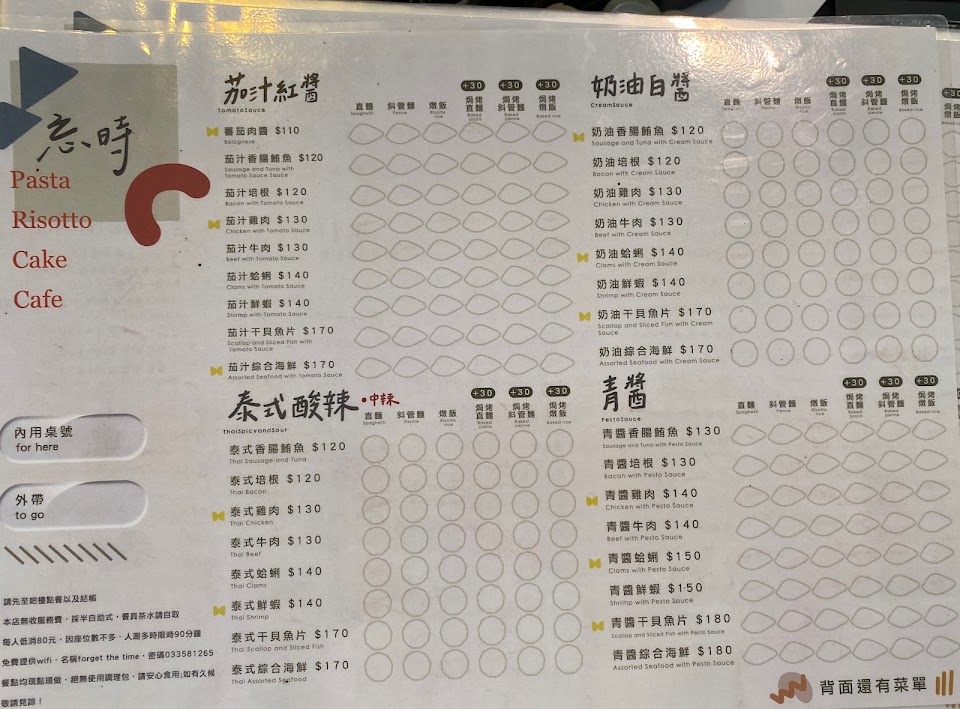 忘時
Pasta
Risotto
Cake
Cafe
內用桌號
for here
外帶
to go
請先至吧檯點餐以及結帳
本店無收服務費，採半自助式，餐具茶水請自取
每人低消80元，因座位數不多，人潮多時限時90分鐘
免費提供wifi，名稱forget the time，密碼033581265
餐點均現點現做，絕無使用調理包，請安心食用;如有久候
敬請見諒！
茄汁紅醬
TomatoSauce
+30 +30 +30
直麵 斜管麵 燉飯 焗烤直麵 焗烤斜管麵 焗烤燉飯
Spaghetti Penne Risotto rice Baked pasta Baked penne Baked rice
蕃茄肉醬 $110
Bolognese
茄汁香腸鮪魚 $120
Sausage and Tuna with
Tomato Sauce Sauce
茄汁培根 $120
Bacon with Tomato Sauce
茄汁雞肉 $130
Chicken with Tomato Sauce
茄汁牛肉 $130
Beef with Tomato Sauce
茄汁蛤蜊 $140
Clams with Tomato Sauce
茄汁鮮蝦 $140
Shrimp with Tomato Sauce
茄汁干貝魚片 $170
Scallop and Sliced Fish with
Tomato Sauce
茄汁綜合海鮮 $170
Assorted Seafood with Tomato Sauce
奶油白醬
CreamSauce
+30 +30 +30
直麵 斜管麵 燉飯 焗烤直麵 焗烤斜管麵 焗烤燉飯
Spaghetti Penne Risotto rice Baked pasta Baked penne Baked rice
奶油香腸鮪魚 $120
Sausage and Tuna with Cream Sauce
奶油培根 $120
Bacon with Cream Sauce
奶油雞肉 $130
Chicken with Cream Sauce
奶油牛肉 $130
Beef with Cream Sauce
奶油蛤蜊 $140
Clams with Cream Sauce
奶油鮮蝦 $140
Shrimp with Cream Sauce
奶油干貝魚片 $170
Scallop and Sliced Fish with Cream
Sauce
奶油綜合海鮮 $170
Assorted Seafood with Cream Sauce
泰式酸辣 •中辣
ThaiSpicyandSour
+30 +30 +30
直麵 斜管麵 燉飯 焗烤直麵 焗烤斜管麵 焗烤燉飯
Spaghetti Penne Risotto rice Baked pasta Baked penne Baked rice
泰式香腸鮪魚 $120
Thai Sausage and Tuna
泰式培根 $120
Thai Bacon
泰式雞肉 $130
Thai Chicken
泰式牛肉 $130
Thai Beef
泰式蛤蜊 $140
Thai Clams
泰式鮮蝦 $140
Thai Shrimp
泰式干貝魚片 $170
Thai Scallop and Sliced Fish
泰式綜合海鮮 $170
Thai Assorted Seafood
青醬
PestoSauce
+30 +30 +30
直麵 斜管麵 燉飯 焗烤直麵 焗烤斜管麵 焗烤燉飯
Spaghetti Penne Risotto rice Baked pasta Baked penne Baked rice
青醬香腸鮪魚 $130
Sausage and Tuna with Pesto Sauce
青醬培根 $130
Bacon with Pesto Sauce
青醬雞肉 $140
Chicken with Pesto Sauce
青醬牛肉 $140
Beef with Pesto Sauce
青醬蛤蜊 $150
Clams with Pesto Sauce
青醬鮮蝦 $150
Shrimp with Pesto Sauce
青醬干貝魚片 $180
Scallop and Sliced Fish with Pesto Sauce
青醬綜合海鮮 $180
Assorted Seafood with Pesto Sauce
背面還有菜單